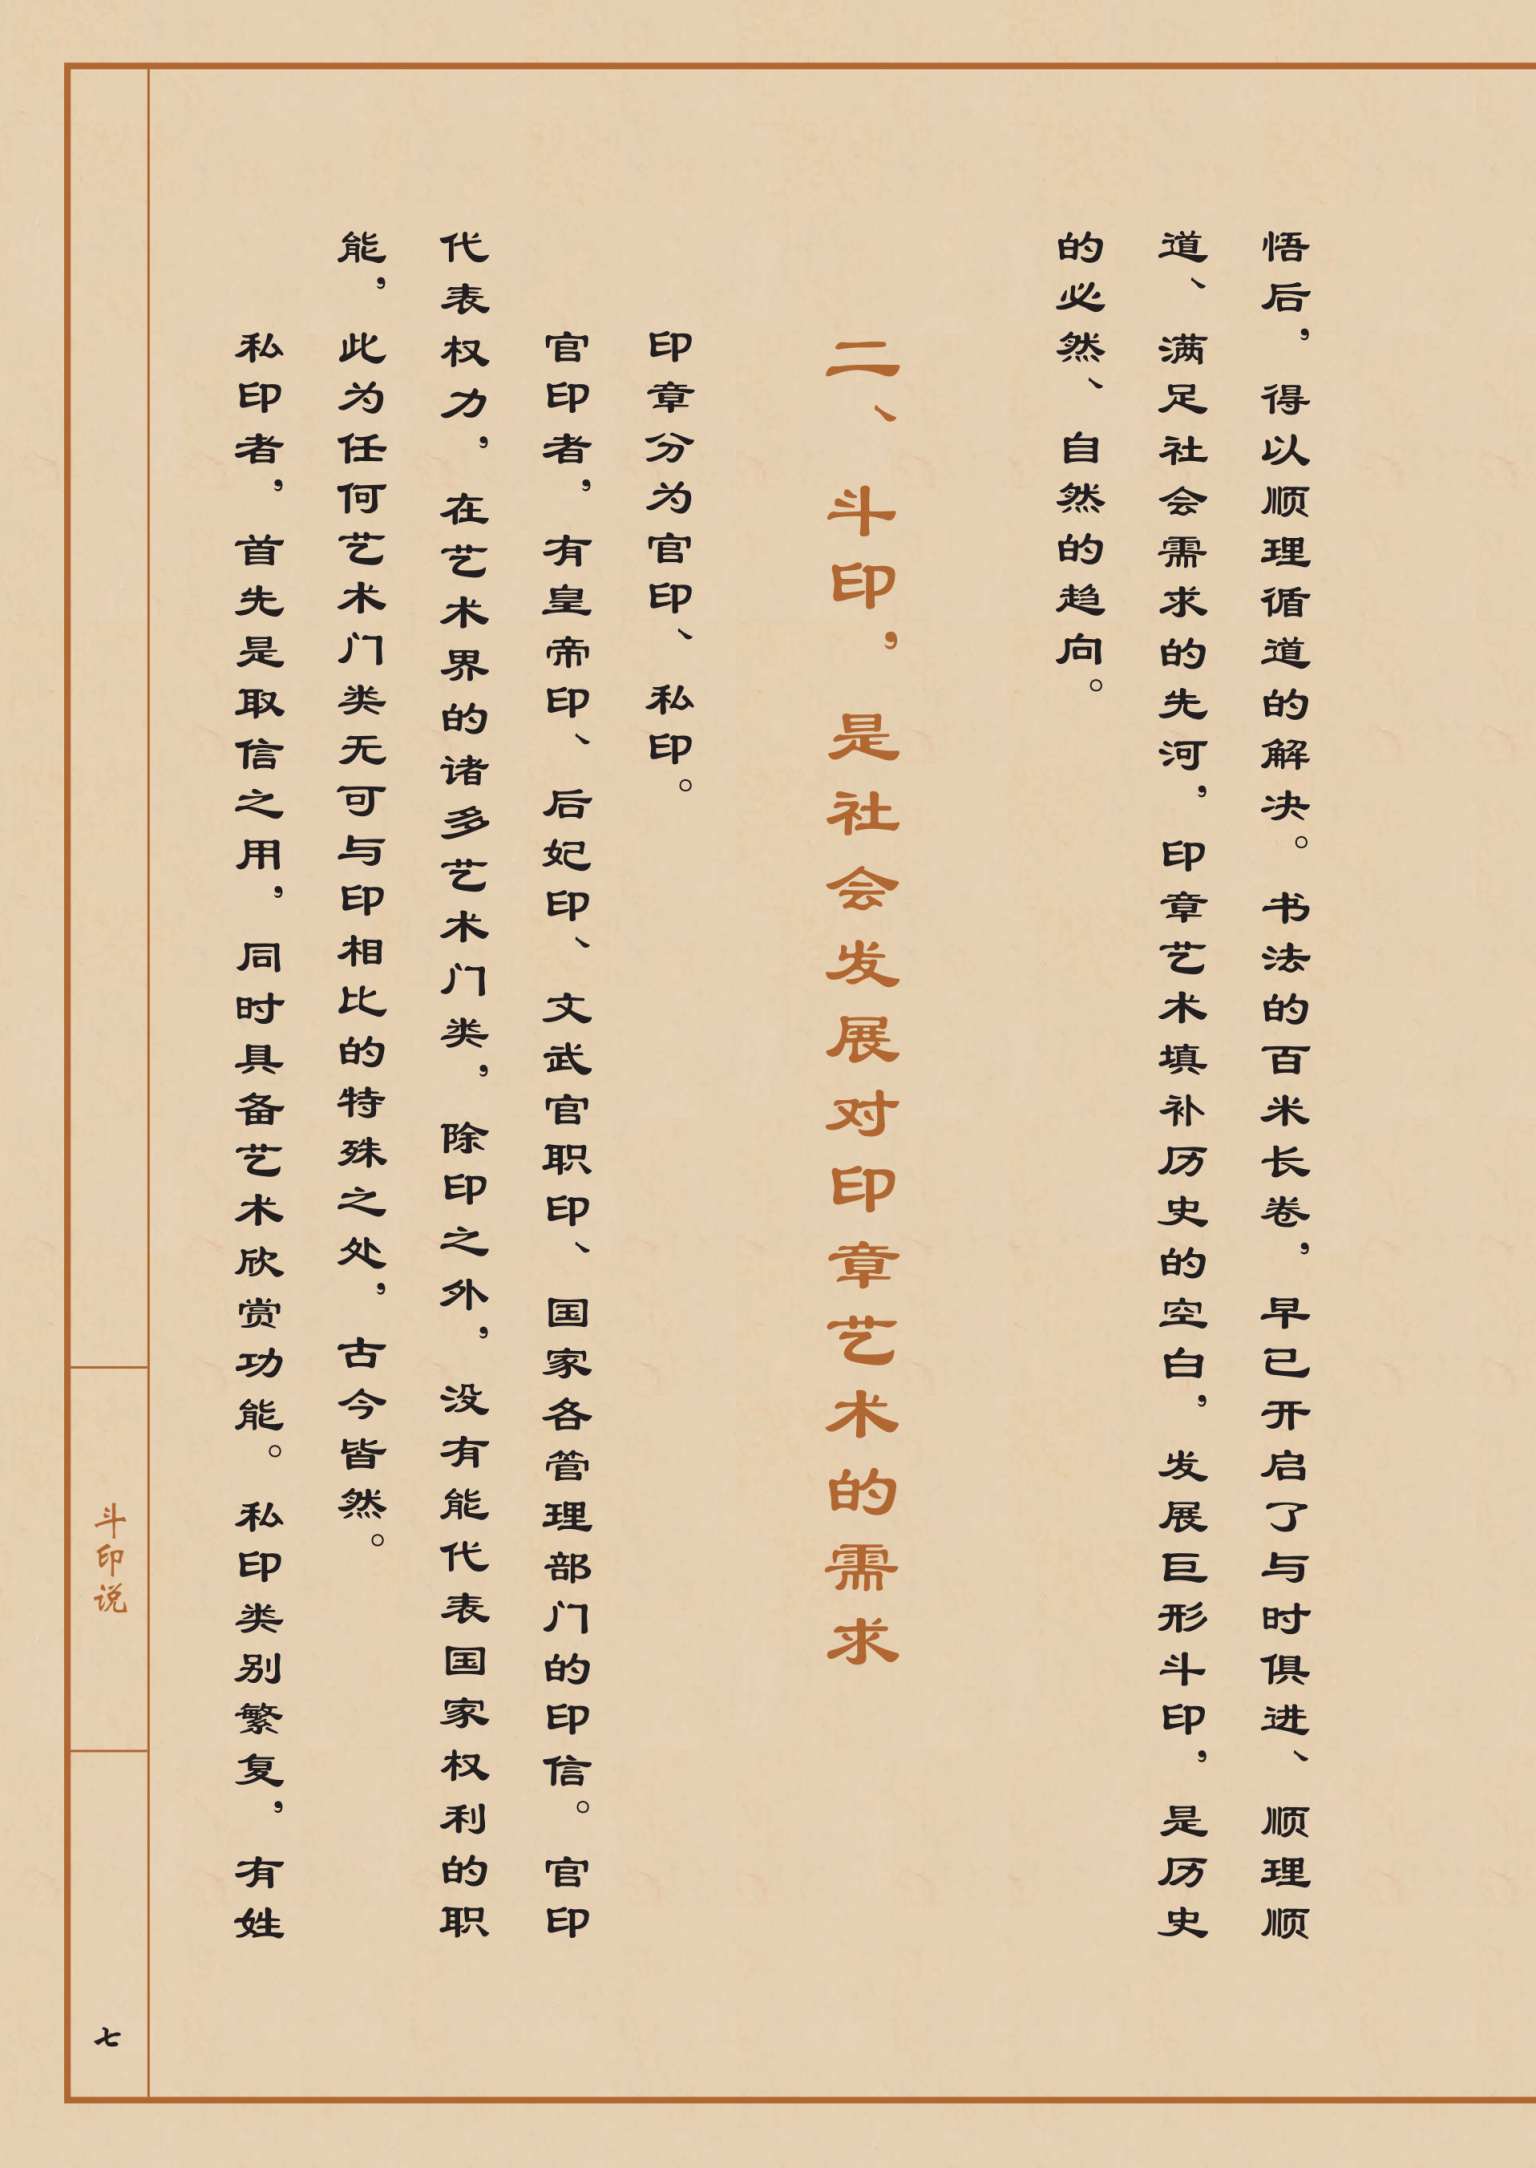 悟后，得以顺理循道的解决。书法的百米长卷，早已开启了与时俱进、顺理顺
道、满足社会需求的先河，印章艺术填补历史的空白，发展巨形斗印，是历史
的必然、自然的趋向。
二、斗印，是社会发展对印章艺术的需求
印章分为官印、私印。
官印者，有皇帝印、后妃印、文武官职印、国家各管理部门的印信。官印
代表权力，在艺术界的诸多艺术门类，除印之外，没有能代表国家权利的职
能，此为任何艺术门类无可与印相比的特殊之处，古今皆然。
私印者，首先是取信之用，同时具备艺术欣赏功能。私印类别繁复，有姓
斗印说
七